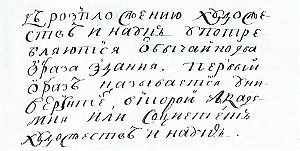 къ розпложению художе-
ствъ и наукъ употре-
бляются обычайно два
образа здания. первый
образъ называется уни-
верзитетъ, вторый Акаде-
мия или Социететъ
художествъ и наукъ.